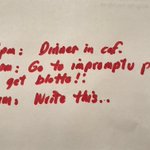 pm: Dinner in caf.
m: Go to impromptu p
get blotto!!
m: Write this..